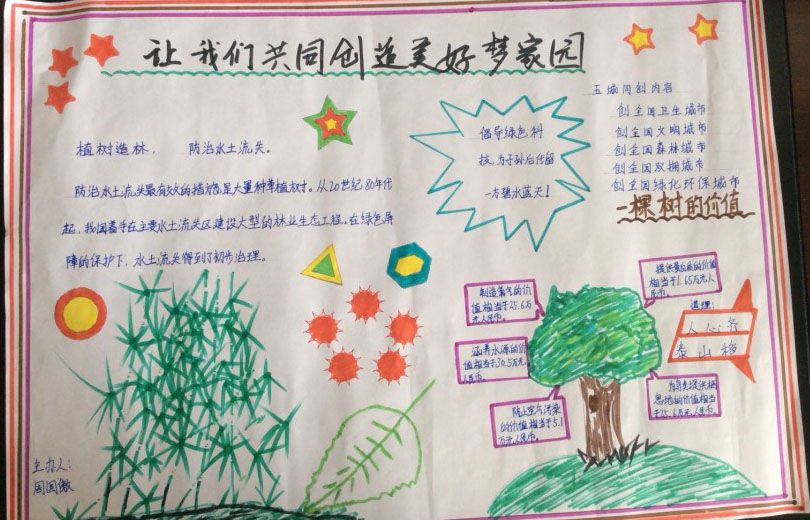 让我们共同创造美好梦家园
植树造林，防治水土流失。
防治水土流失最有效的措施是大量种草植树。从20世纪80年代
起，我国着手在主要水土流失区建设大型的林业生态工程。在绿色屏
障的保护下，水土流失得到了初步治理。
倡导绿色科
技，为子孙后代留
一方碧水蓝天！
五城同创内容
创全国卫生城市
创全国文明城市
创全国森林城市
创全国双拥城市
创全国绿化环保城市
一棵树的价值
制造氧气的价
值相当于25.6万
元人民币。
提供蛋白质的价值
相当于1.65万元人
民币。
涵养水源的价
值相当于30.5万元
人民币。
防止空气污染
的价值相当于5.1
万元人民币。
为鸟类提供栖
息地的价值相当
于25.6万元人民币。
道理：
人心齐
泰山移
主办人：
周国傲